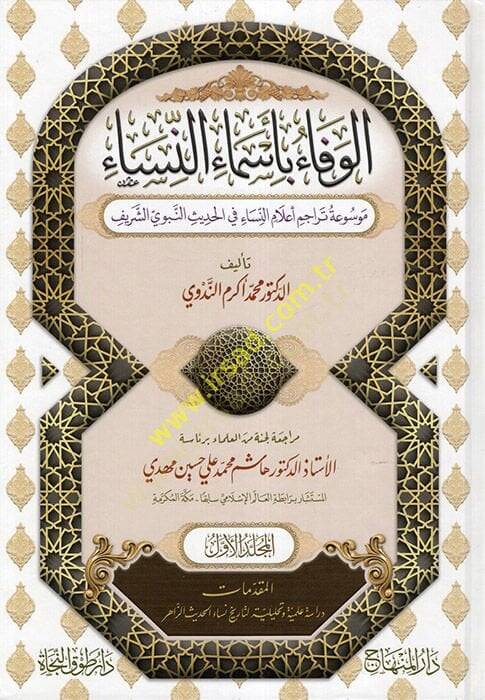 الوفاء بأسماء النساء
موسوعة تراجم أعلام النساء في الحديث النبوي الشريف
تأليف
الدكتور محمد أكرم الندوي
www.irsad.com.tr
مراجعة لجنة من العلماء برئاسة
الأستاذ الدكتور هاشم محمد علي حسين مهدي
المستشار برابطة العالم الإسلامي سابقا - مكة المكرمة
المجلد الأول
المقدمات
دراسة علمية وتحليلية لتاريخ نساء الحديث الزاهر
دار المنهاج
دار طوق النجاة